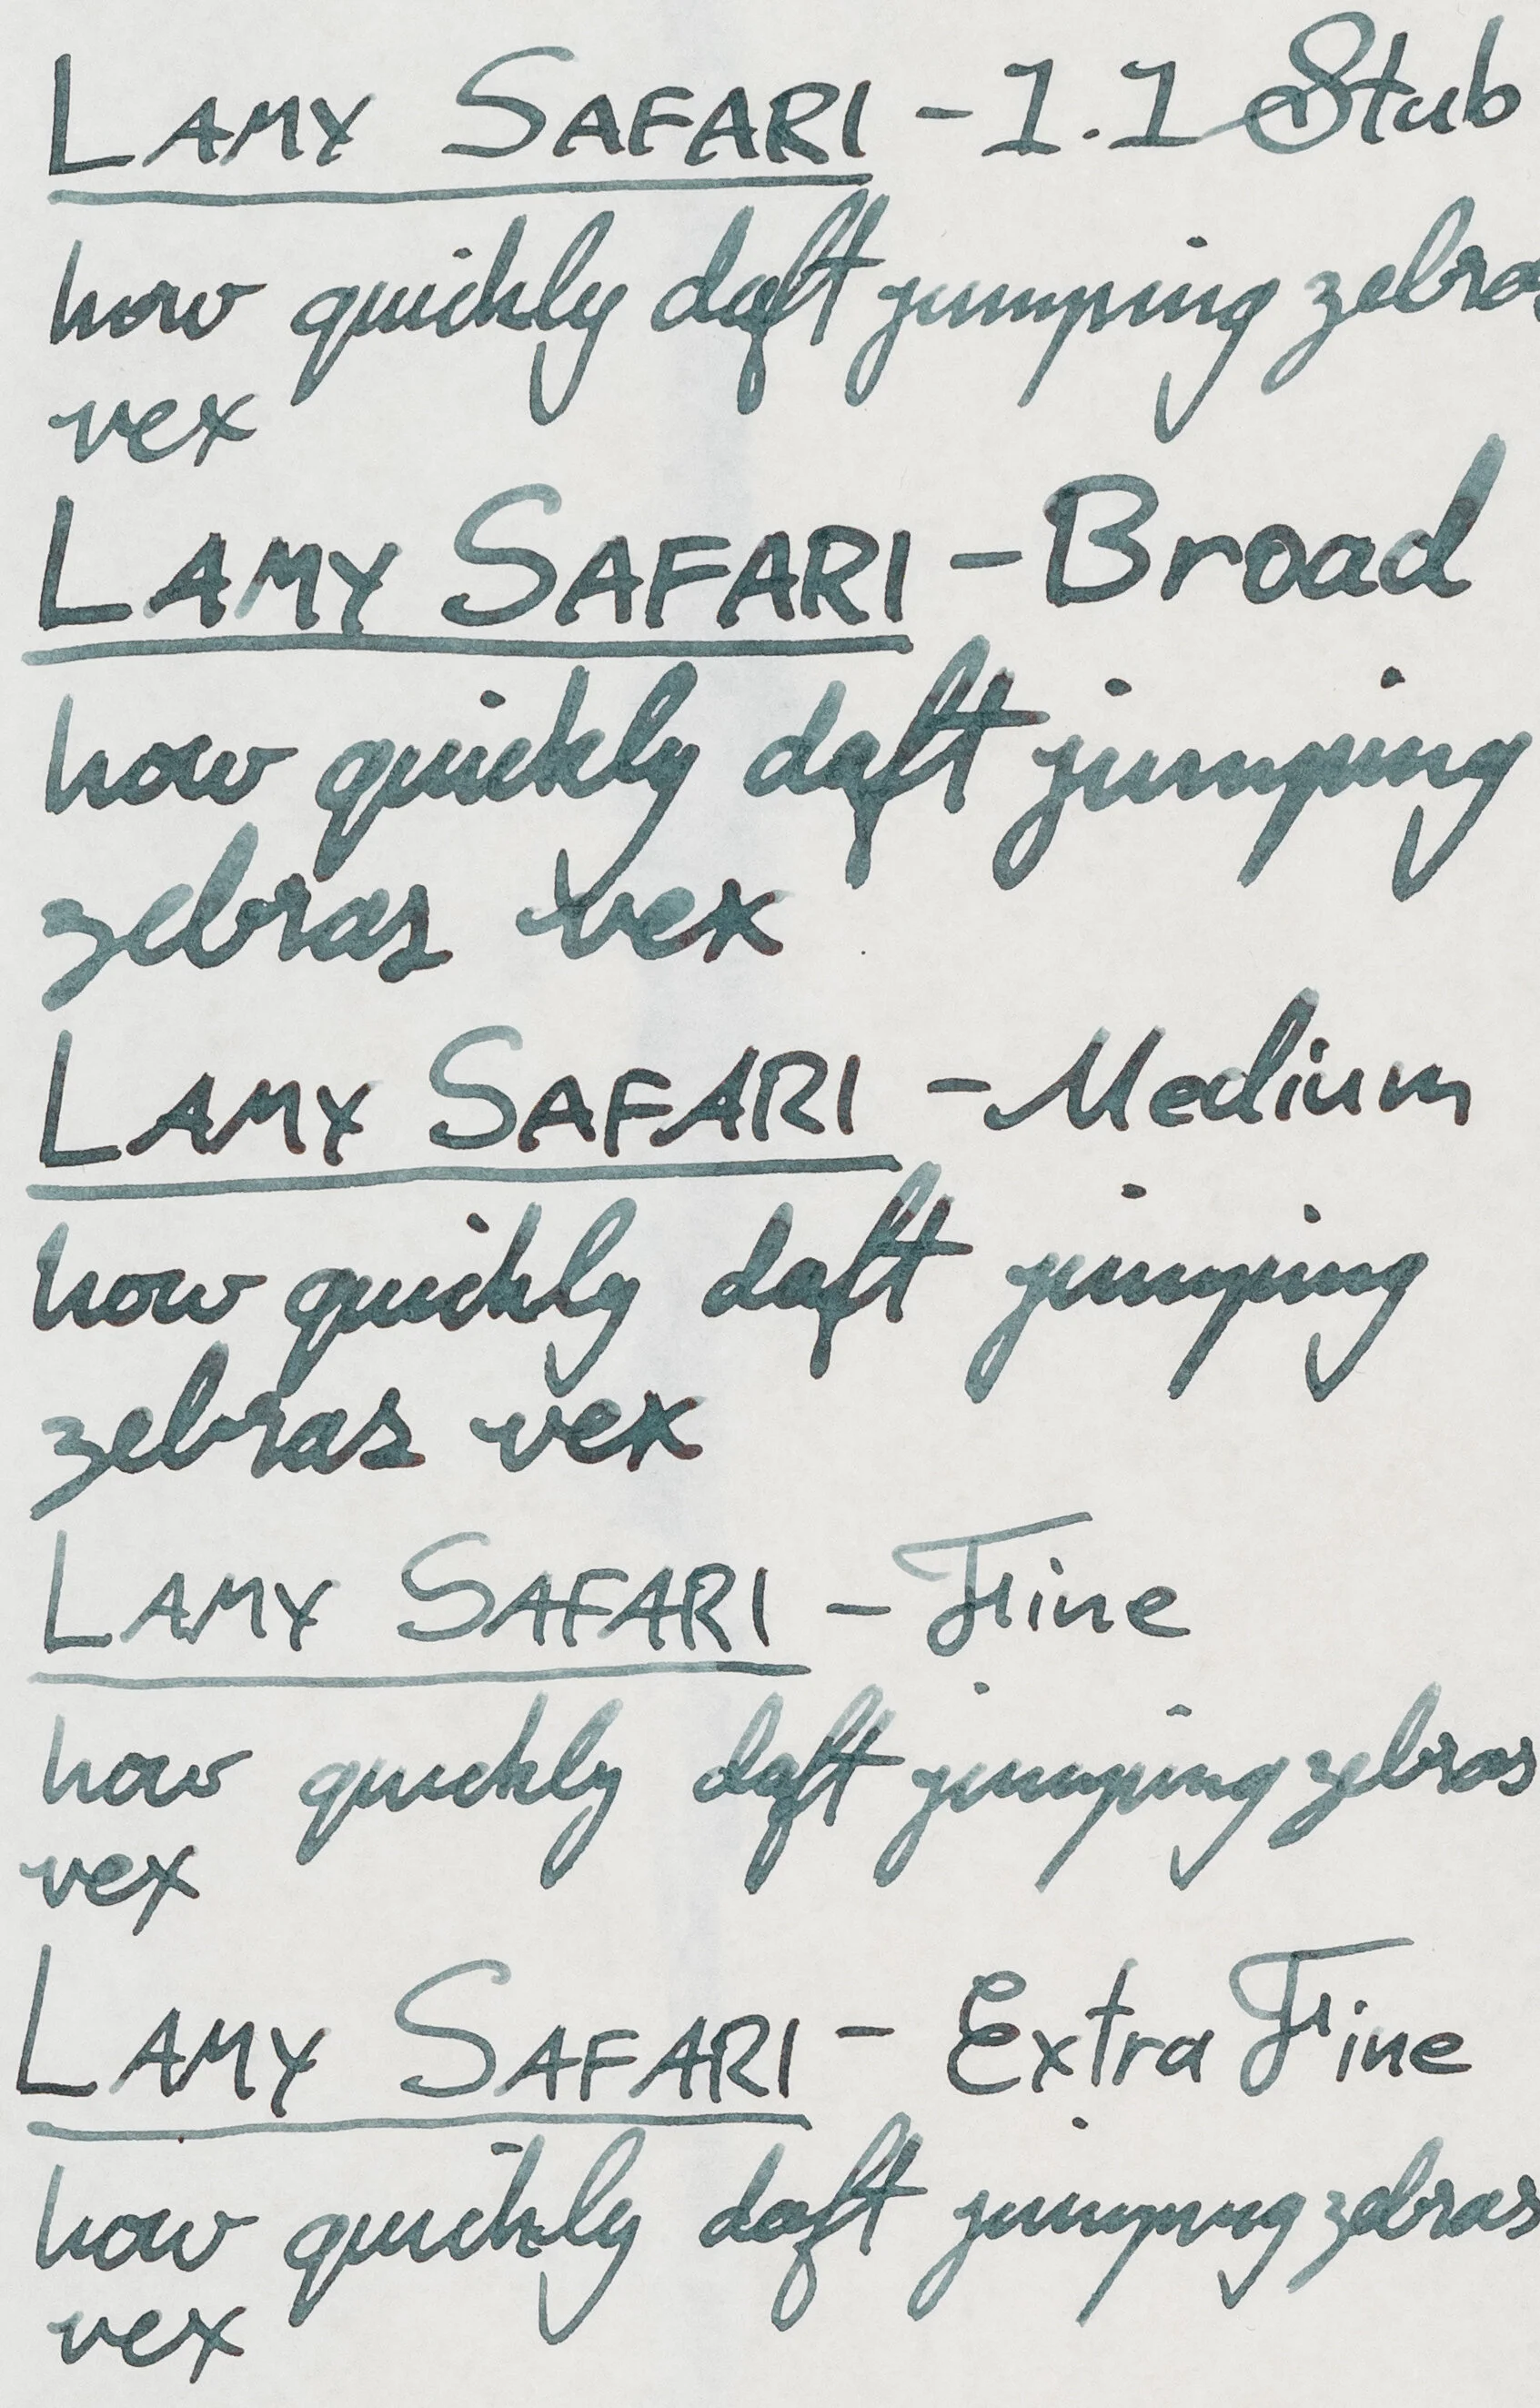 LAMY SAFARI - 1.1 Stub
how quickly daft jumping zebra
vex
LAMY SAFARI - Broad
how quickly daft jumping
zebras vex
LAMY SAFARI - Medium
how quickly daft jumping
zebras vex
LAMY SAFARI - Fine
how quickly daft jumping zebras
vex
LAMY SAFARI - Extra Fine
how quickly daft jumping zebras
vex